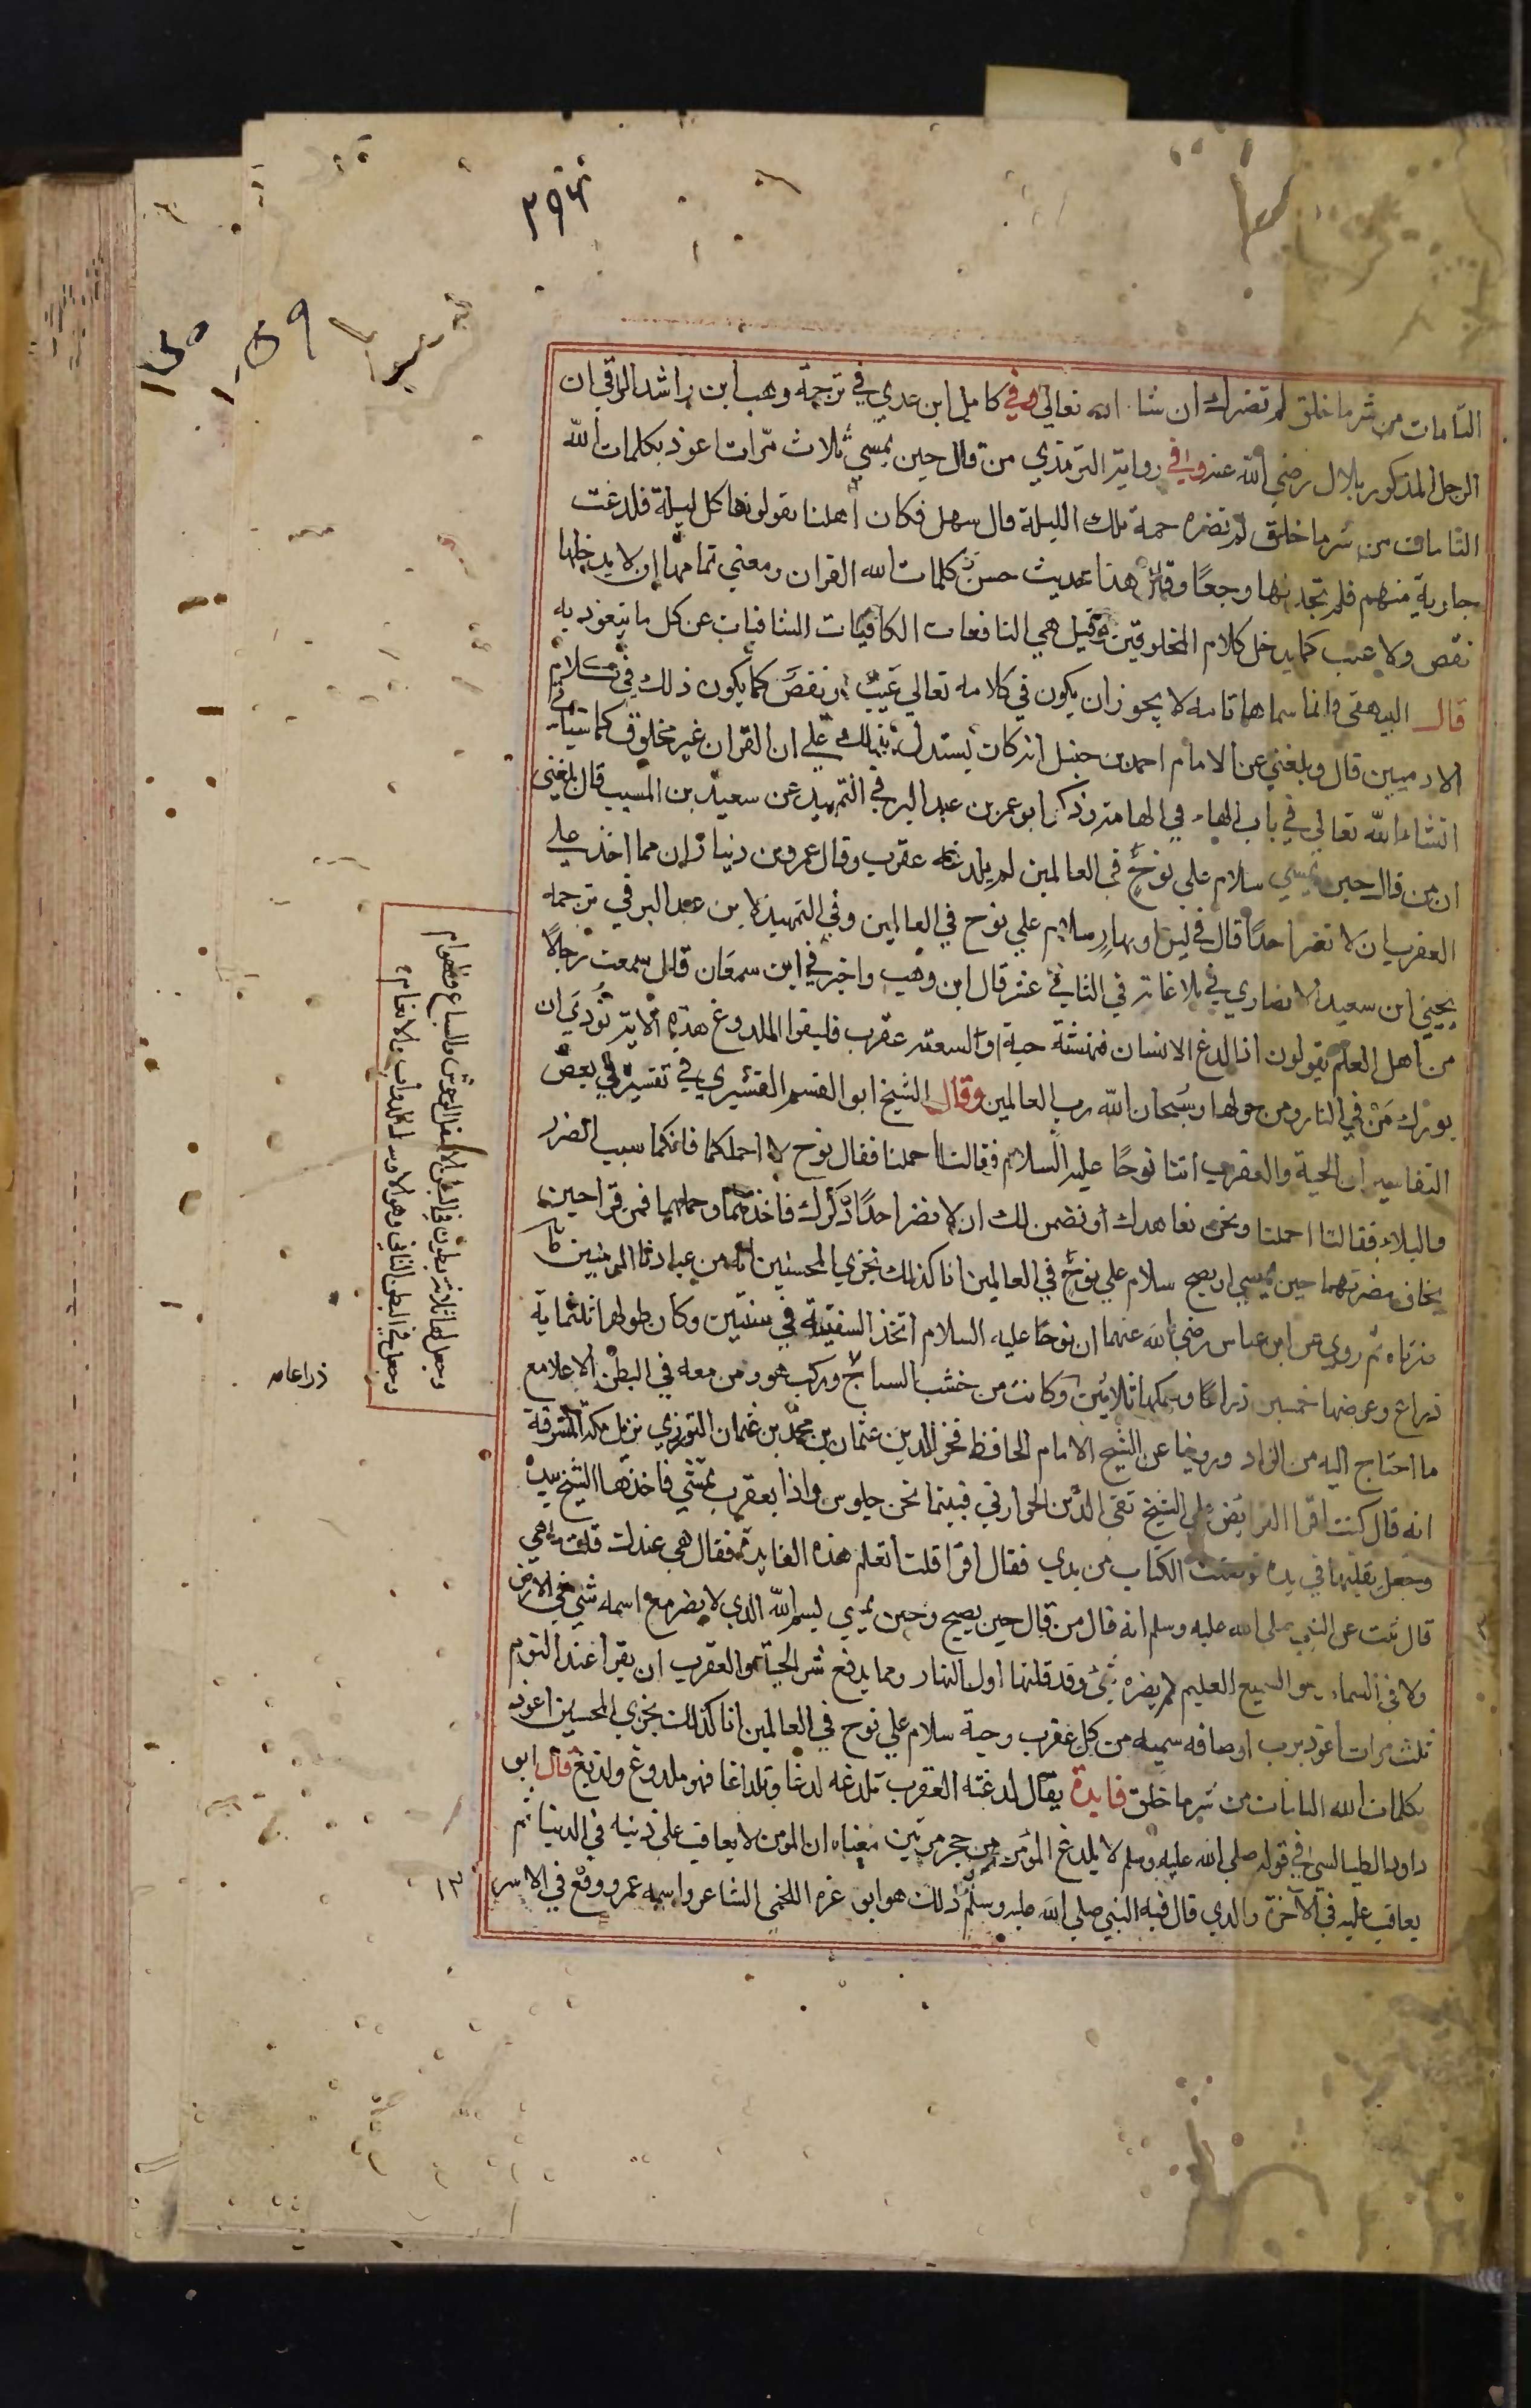 ٢٩٣
التامات من شر ما خلق لم تضرك ان شا الله تعالي وفي كامل ابن عدي في ترجمة وهب ابن راشد الرقي ان
الرجل المذكور بلال رضي الله عنه وفي رواية الترمذي من قال حين يمسي ثلاث مرات اعوذ بكلمات الله
التامات من شر ما خلق لم تضره حمة تلك الليلة قال سهل فكان اهلنا يقولونها كل ليلة فلدغت
جارية منهم فلم تجد لها وجعا وقال هذا حديث حسن كلمات الله القران ومعني تمامها ان لا يدخلها
نقص ولا عيب كما يدخل كلام المخلوقين وقيل هي النافعات الكافيات الشافيات عن كل ما يتعوذ به
قال البيهقي وانما سماها تامه لا يجوز ان يكون في كلامه تعالي عيب او نقص كما يكون ذلك في كلام
الادميين قال وبلغني عن الامام احمد بن حنبل انه كان يستدل بذلك علي ان القران غير مخلوق كما سياتي
انشاء الله تعالي في باب الهاء في الهامة وذكر ابو عمر بن عبد البر في التمهيد عن سعيد بن المسيب قال بلغني
ان من قال حين يمسي سلام علي نوح في العالمين لم يلدغه عقرب وقال عمرو بن دينار ان مما اخذ علي
العقرب ان لا تضر احدا قال في ليل او نهار سلام علي نوح في العالمين وفي التمهيد لابن عبد البر في ترجمه
يحيي ابن سعيد الانصاري في بلاغاته في الثاني عشر قال ابن وهب واخبرني ابن سمعان قال سمعت رجالا
من اهل العلم يقولون اذا لدغ الانسان فنهشته حية او السعته عقرب فليقرا الملدوغ هذه الاية نودي ان
بورك من في النار ومن حولها وسبحان الله رب العالمين وقال الشيخ ابو القسم القشيري في تفسيره في بعض
التفاسير ان الحية والعقرب اتتا نوحا عليه السلام فقالتا احملنا فقال نوح لا احملكما فانكما سبب الضرر
والبلاء فقالتا احملنا ونحن نعاهدك او نضمن لك ان لا نضر احدا ذكرك فاخذ عهدهما وحملهما فمن قرا حين
يخاف مضرتهما حين يمسي او يصبح سلام علي نوح في العالمين انا كذلك نجزي المحسنين انه من عبادنا المومنين ما
ضرتاه ثم روي عن ابن عباس رضي الله عنهما ان نوحا عليه السلام اتخذ السفينة في سنتين وكان طولها ثلثماية
ذراع وعرضها خمسين ذراعا وسمكها ثلاثين وكانت من خشب الساج وركب هو ومن معه في البطن الاعلا مع
ما احتاج اليه من الزاد وروينا عن الشيخ الامام الحافظ فخر الدين عثمان بن محمد بن عثمان التوزري نزيل مكة المشرفة
انه قال كنت اقرا الفرائض علي الشيخ تقي الدين الحوراني فبينما نحن جلوس واذا بعقرب تمشي فاخذها الشيخ بيده
وجعل يقلبها في يده فوضعت الكتاب من يدي فقال اقرا قلت اتعلم هذه الفايدة فقال هي عندك قلت ما هي
قال ثبت عن النبي صلي الله عليه وسلم انه قال من قال حين يصبح وحين يمسي بسم الله الذي لا يضر مع اسمه شي في الارض
ولا في السماء وهو السميع العليم لم يضره شي وقد قلتها اول النهار ومما يدفع شر الحية والعقرب ان يقرا عند النوم
ثلث مرات اعوذ برب اوصافه سميه من كل عقرب وحية سلام علي نوح في العالمين انا كذلك نجزي المحسنين اعوذ
بكلمات الله التامات من شر ما خلق فايدة يقال لدغته العقرب تلدغه لدغا وتلداغا فهو ملدوغ ولديغ قال ابو
داود الطيالسي في قوله صلي الله عليه وسلم لا يلدغ المؤمن من حجر مرتين معناه ان المومن لا يعاقب علي ذنبه في الدنيا ثم
يعاقب عليه في الاخرة والذي قال فيه النبي صلي الله عليه وسلم ذلك هو ابو غره اللخمي الشاعر واسمه عمرو وقع في الاسر
وجعل لها ثلاثة بطون في البطن الاسفل الوحوش والسباع والهوام
وجعل في البطن الثاني وهو الاوسط الدواب والانعام
ذراعا صه
١٣